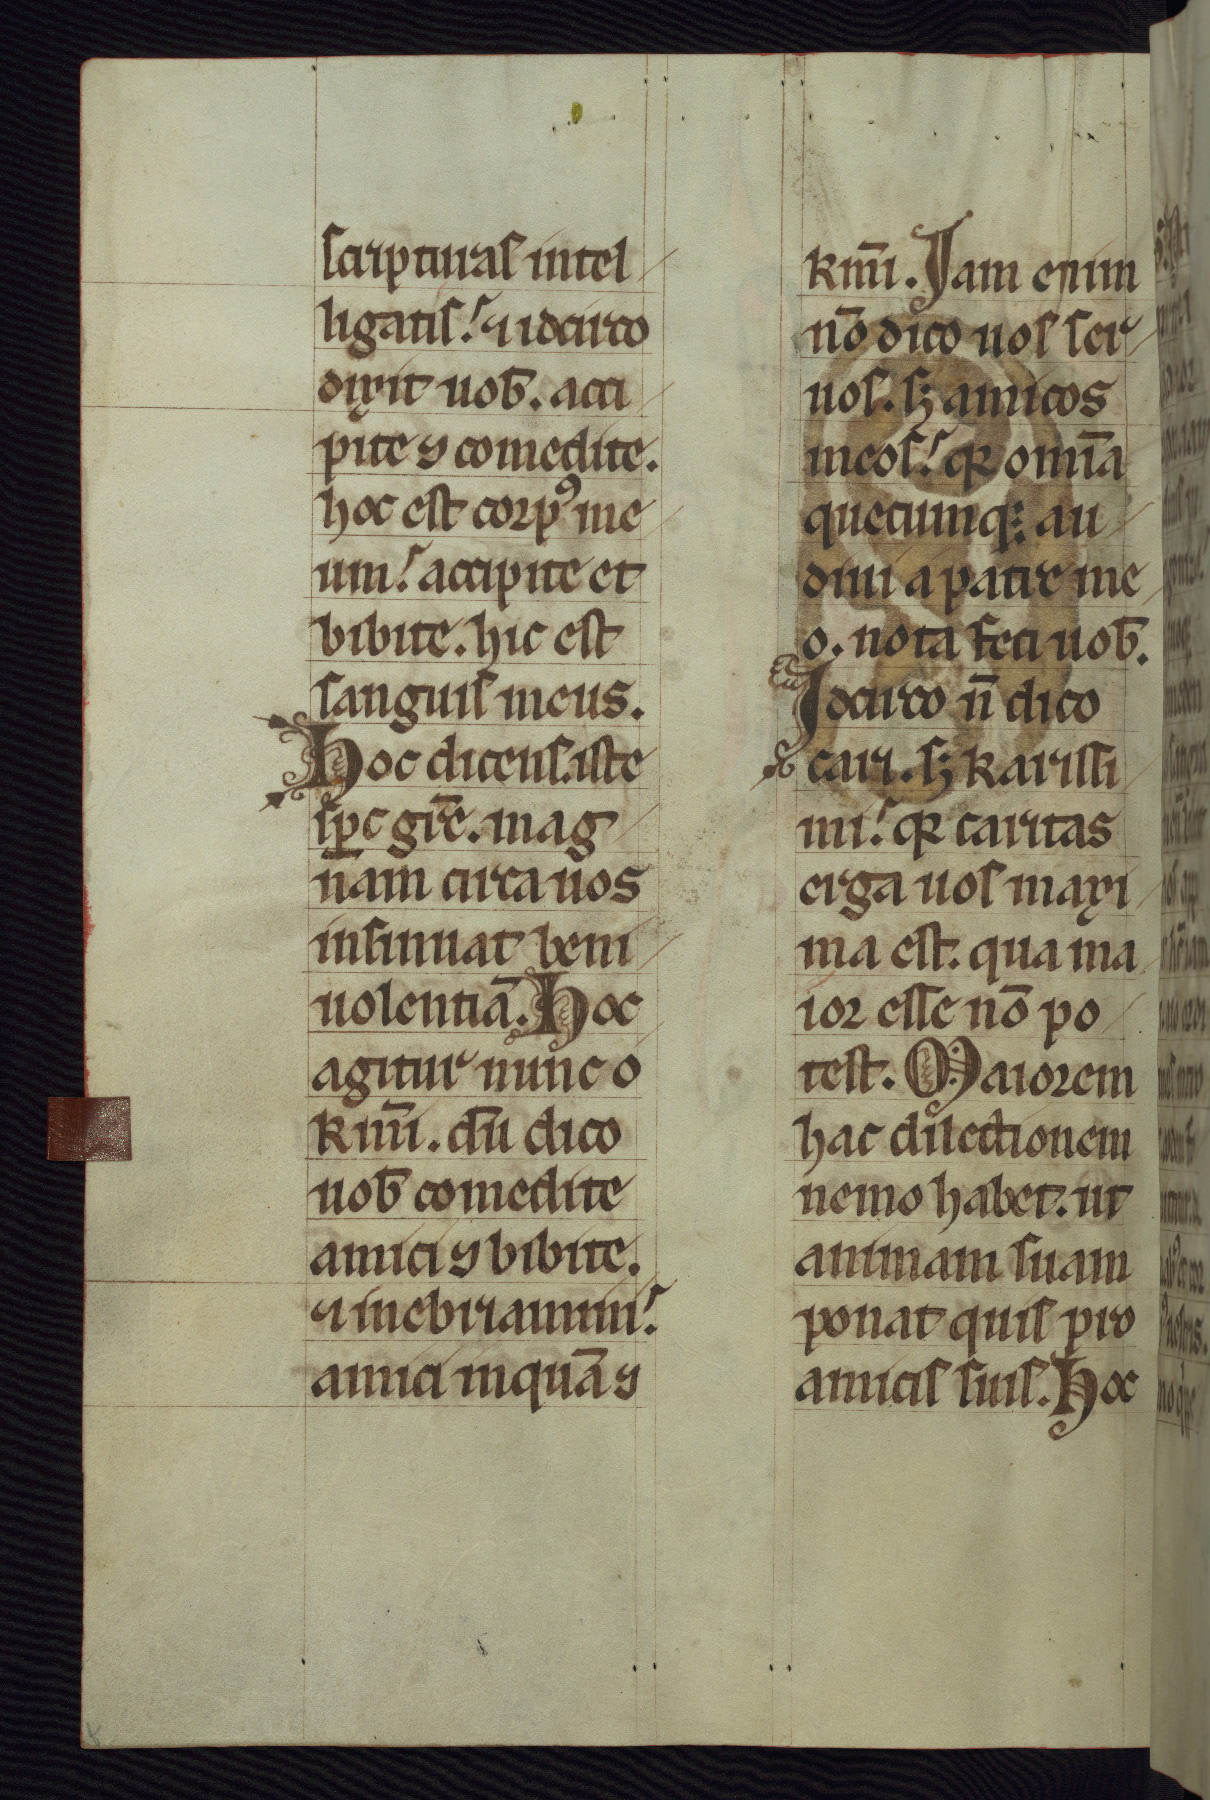 scripturas intel
ligatis. ⁊ idcirco
dixit uob̅. acci
pite ꝯ comedite.
hoc est corpꝰ me
um. accipite et
bibite. hic est
sanguis meus.
Hoc dicens. iste
sp̅c gr̅e. mag
nam circa uos
insinuat beni
uolentia̅. Hoc
agitur nunc o
km̅i. du̅ dico
uob̅ comedite
amici ꝯ bibite.
⁊ inebriamini.
amici inqua̅ ꝯ
km̅i. Iam enim
no̅ dico uos ser
uos. sꝫ amicos
meos. qꝛ omi̅a
quecumqꝫ au
diui a patre me
o. nota feci uob̅.
Idcirco n̅ dico
cari. sꝫ karissi
mi. qꝛ caritas
erga uos maxi
ma est. qua ma
ior esse no̅ po
test. Maiorem
hac dilectionem
nemo habet. ut
animam suam
ponat quis pro
amicis suis. Hoc